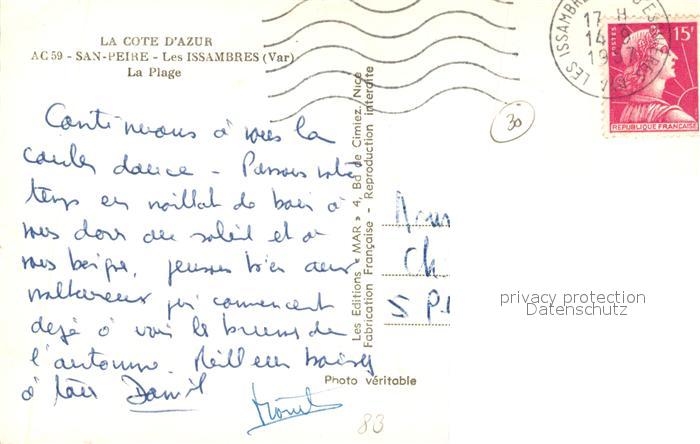 LA COTE D'AZUR
AC 59 - SAN-PEIRE - Les ISSAMBRES (Var)
La Plage
Continuons à nous la
couler douce - Passons notre
temps en maillot de bain à
nous dorer au soleil et à
nous baigner, pensons bien aux
malheureux qui commencent
déjà à voir les brumes de
l'automne. Meilleurs baisers
à tous Daniel
Les Editions « MAR » 4, Bd de Cimiez, Nice
Fabrication Française - Reproduction interdite
Photo véritable
LES ISSAMBRES
17 H
14 - 9
1957
POSTES
15F
REPUBLIQUE FRANÇAISE
30
Ch
5 P.
83
privacy protection
Datenschutz